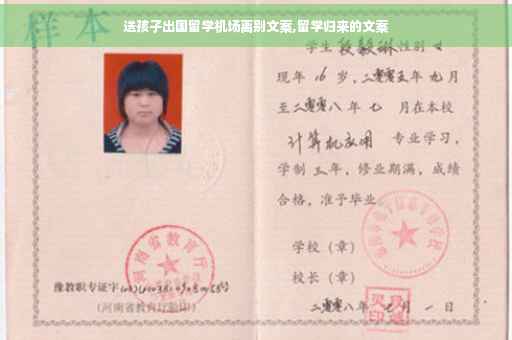 送孩子出国留学机场离别文案,留学归来的文案
样本
学生 段毅琳 性别 女
现年 16 岁,二零零五年 九 月
至二零零八年 七 月在本校
计算机应用 专业学习,
学制 三 年,修业期满,成绩
合格,准予毕业
学校(章)
校长(章)
二零零八年 七 月 一 日
河南省教育厅
豫教职专证字
(河南省教育厅验印)